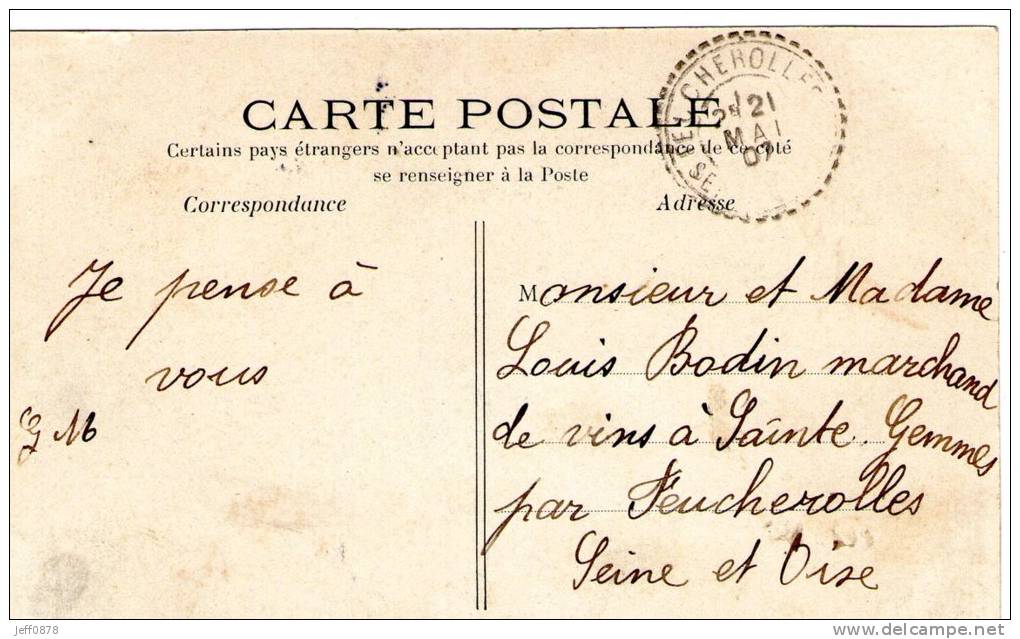 CARTE POSTALE
Certains pays étrangers n'acceptant pas la correspondance de ce côté
se renseigner à la Poste
Correspondance
Adresse
FEUCHEROLLES
21
MAI
07
Je pense à
vous
Monsieur et Madame
Louis Bodin marchand
de vins à Sainte Gemmes
par Feucherolles
Seine et Oise
jeff0878
www.delcampe.net